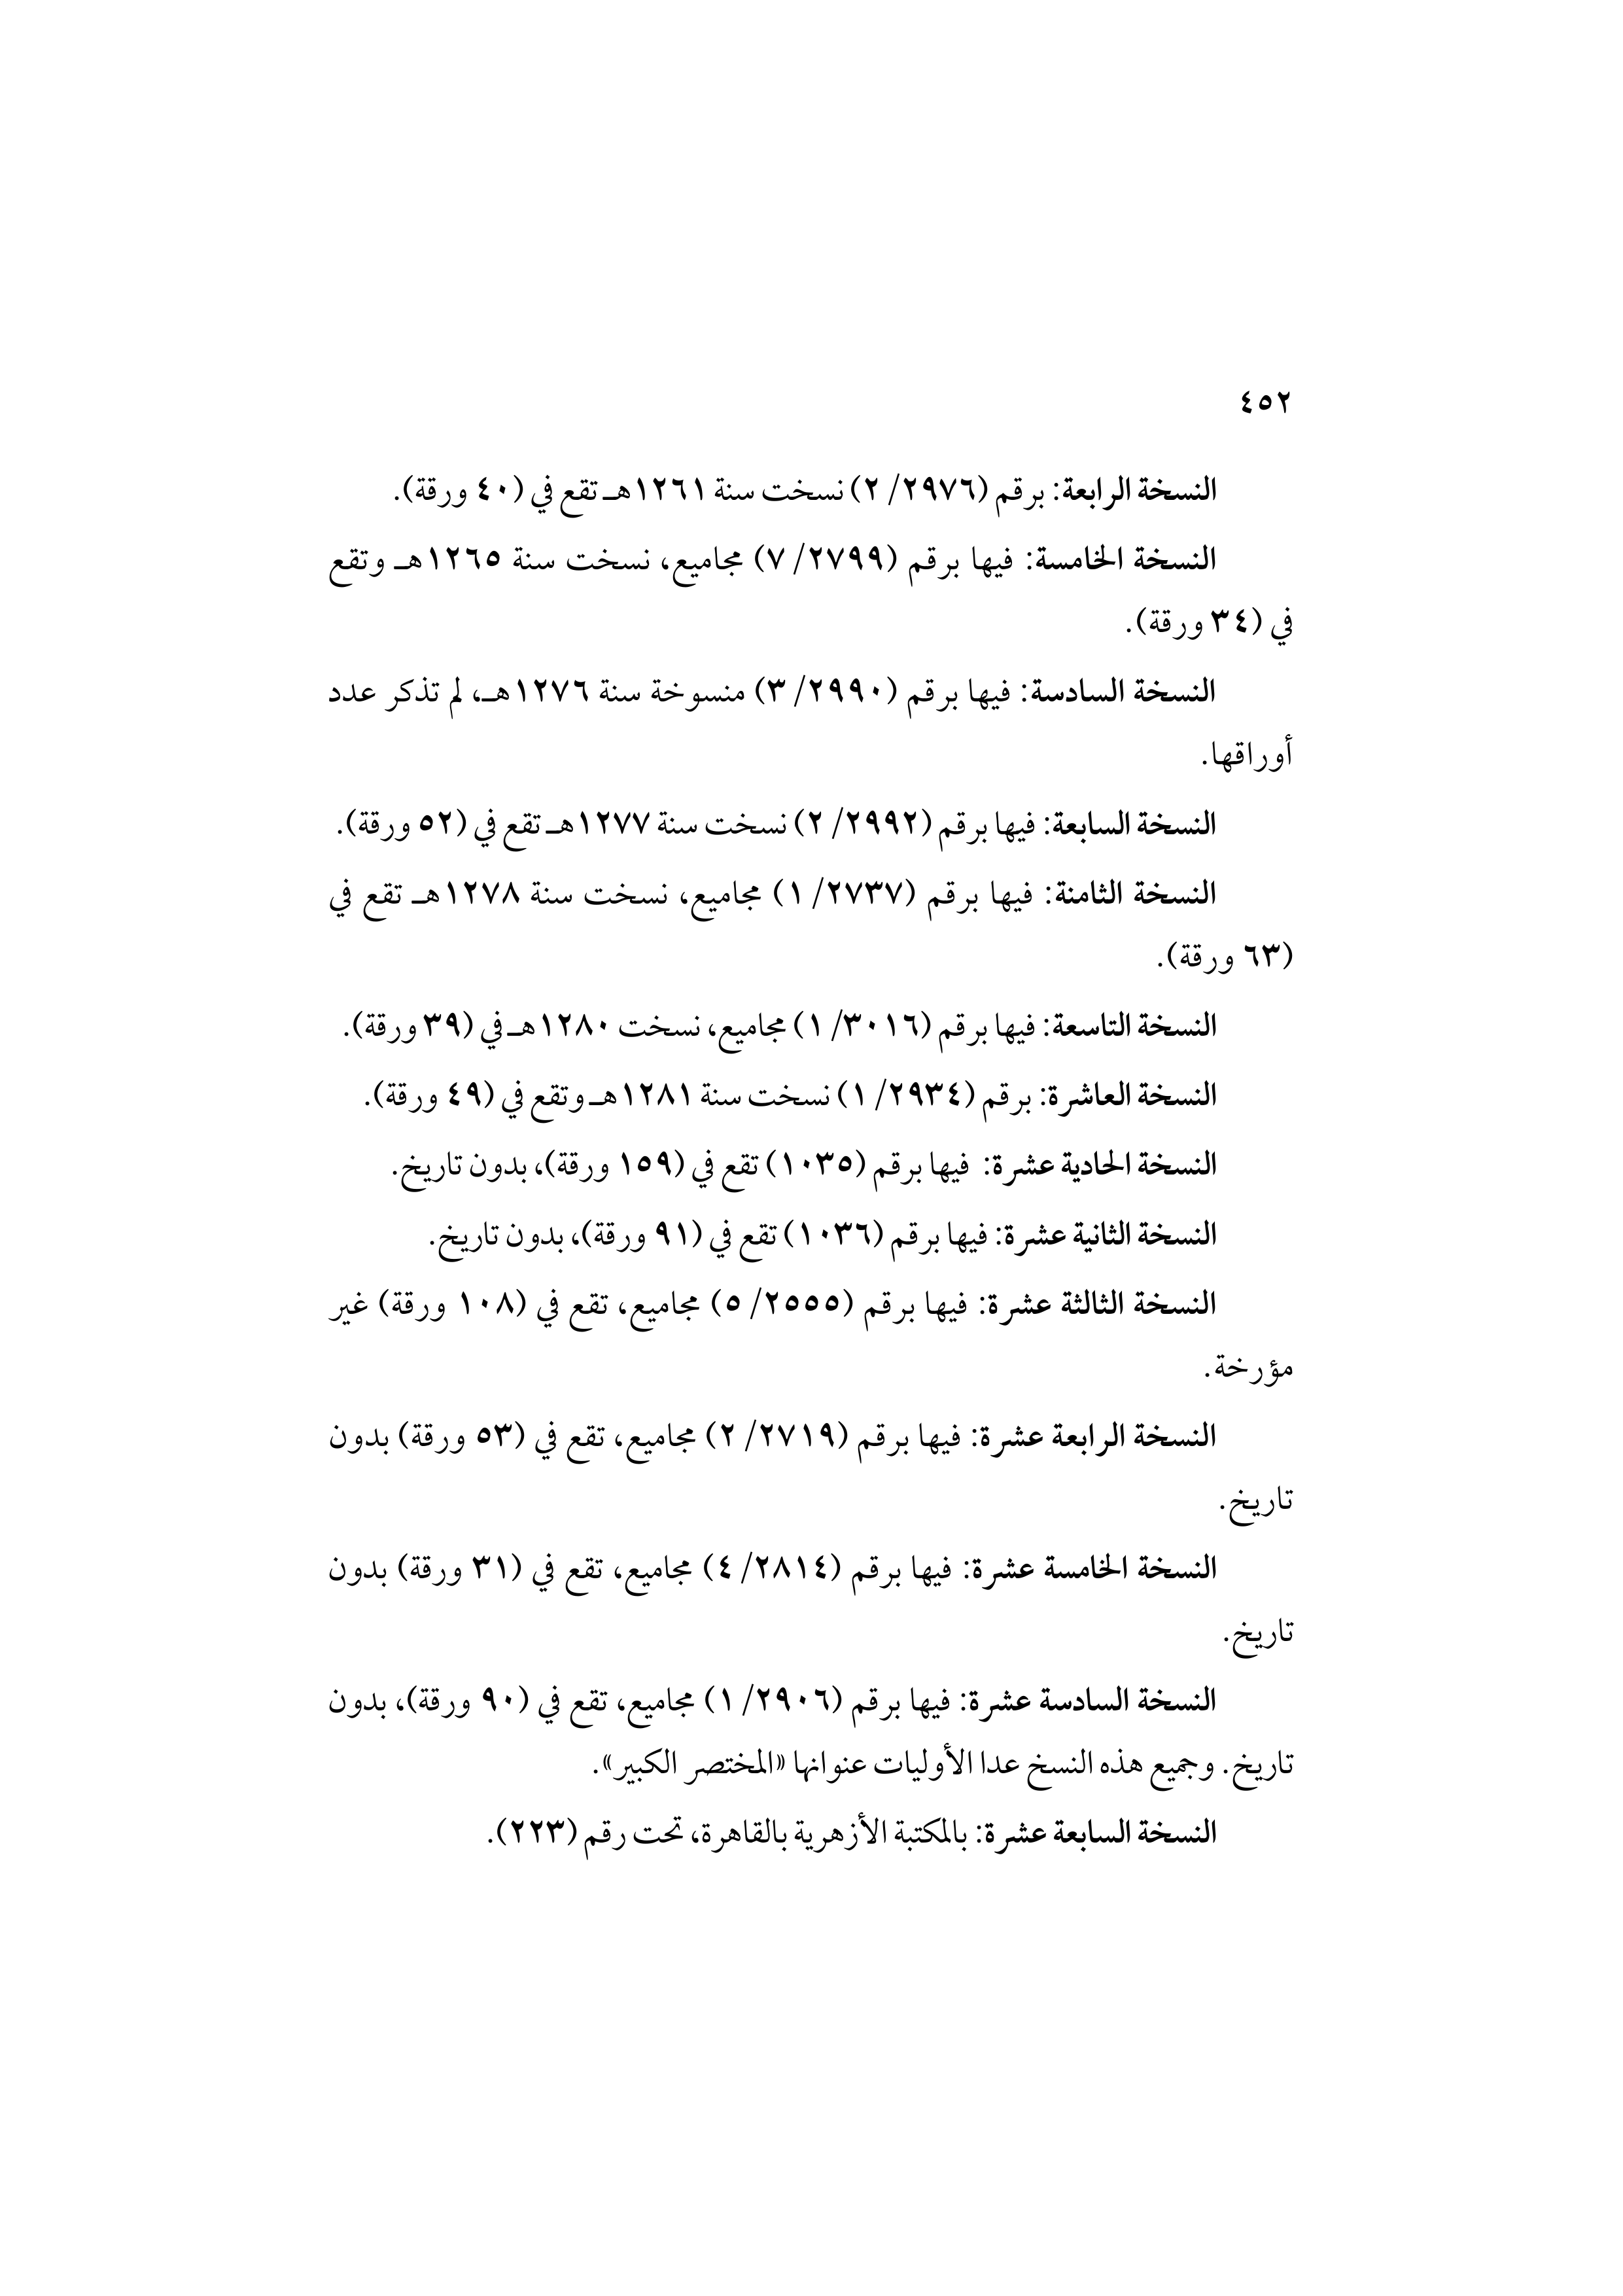 ٤٥٢
النسخة الرابعة: برقم (٢٩٧٦/ ٢) نسخت سنة ١٢٦١هـ تقع في (٤٠ ورقة).
النسخة الخامسة: فيها برقم (٢٧٩٩/ ٧) مجاميع، نسخت سنة ١٢٦٥هـ وتقع
في (٣٤ ورقة).
النسخة السادسة: فيها برقم (٢٩٩٠/ ٣) منسوخة سنة ١٢٧٦هـ، لم تذكر عدد
أوراقها.
النسخة السابعة: فيها برقم (٢٩٩٢/ ٢) نسخت سنة ١٢٧٧هـ تقع في (٥٢ ورقة).
النسخة الثامنة: فيها برقم (٢٧٣٧/ ١) مجاميع، نسخت سنة ١٢٧٨هـ تقع في
(٦٣ ورقة).
النسخة التاسعة: فيها برقم (٣٠١٦/ ١) مجاميع، نسخت ١٢٨٠هـ في (٣٩ ورقة).
النسخة العاشرة: برقم (٢٩٣٤/ ١) نسخت سنة ١٢٨١هـ وتقع في (٤٩ ورقة).
النسخة الحادية عشرة: فيها برقم (١٠٣٥) تقع في (١٥٩ ورقة)، بدون تاريخ.
النسخة الثانية عشرة: فيها برقم (١٠٣٦) تقع في (٩١ ورقة)، بدون تاريخ.
النسخة الثالثة عشرة: فيها برقم (٢٥٥٥/ ٥) مجاميع، تقع في (١٠٨ ورقة) غير
مؤرخة.
النسخة الرابعة عشرة: فيها برقم (٢٧١٩/ ٢) مجاميع، تقع في (٥٣ ورقة) بدون
تاريخ.
النسخة الخامسة عشرة: فيها برقم (٢٨١٤/ ٤) مجاميع، تقع في (٣١ ورقة) بدون
تاريخ.
النسخة السادسة عشرة: فيها برقم (٢٩٠٦/ ١) مجاميع، تقع في (٩٠ ورقة)، بدون
تاريخ. وجميع هذه النسخ عدا الأوليات عنوانها «المختصر الكبير».
النسخة السابعة عشرة: بالمكتبة الأزهرية بالقاهرة، تحت رقم (٢٢٣).